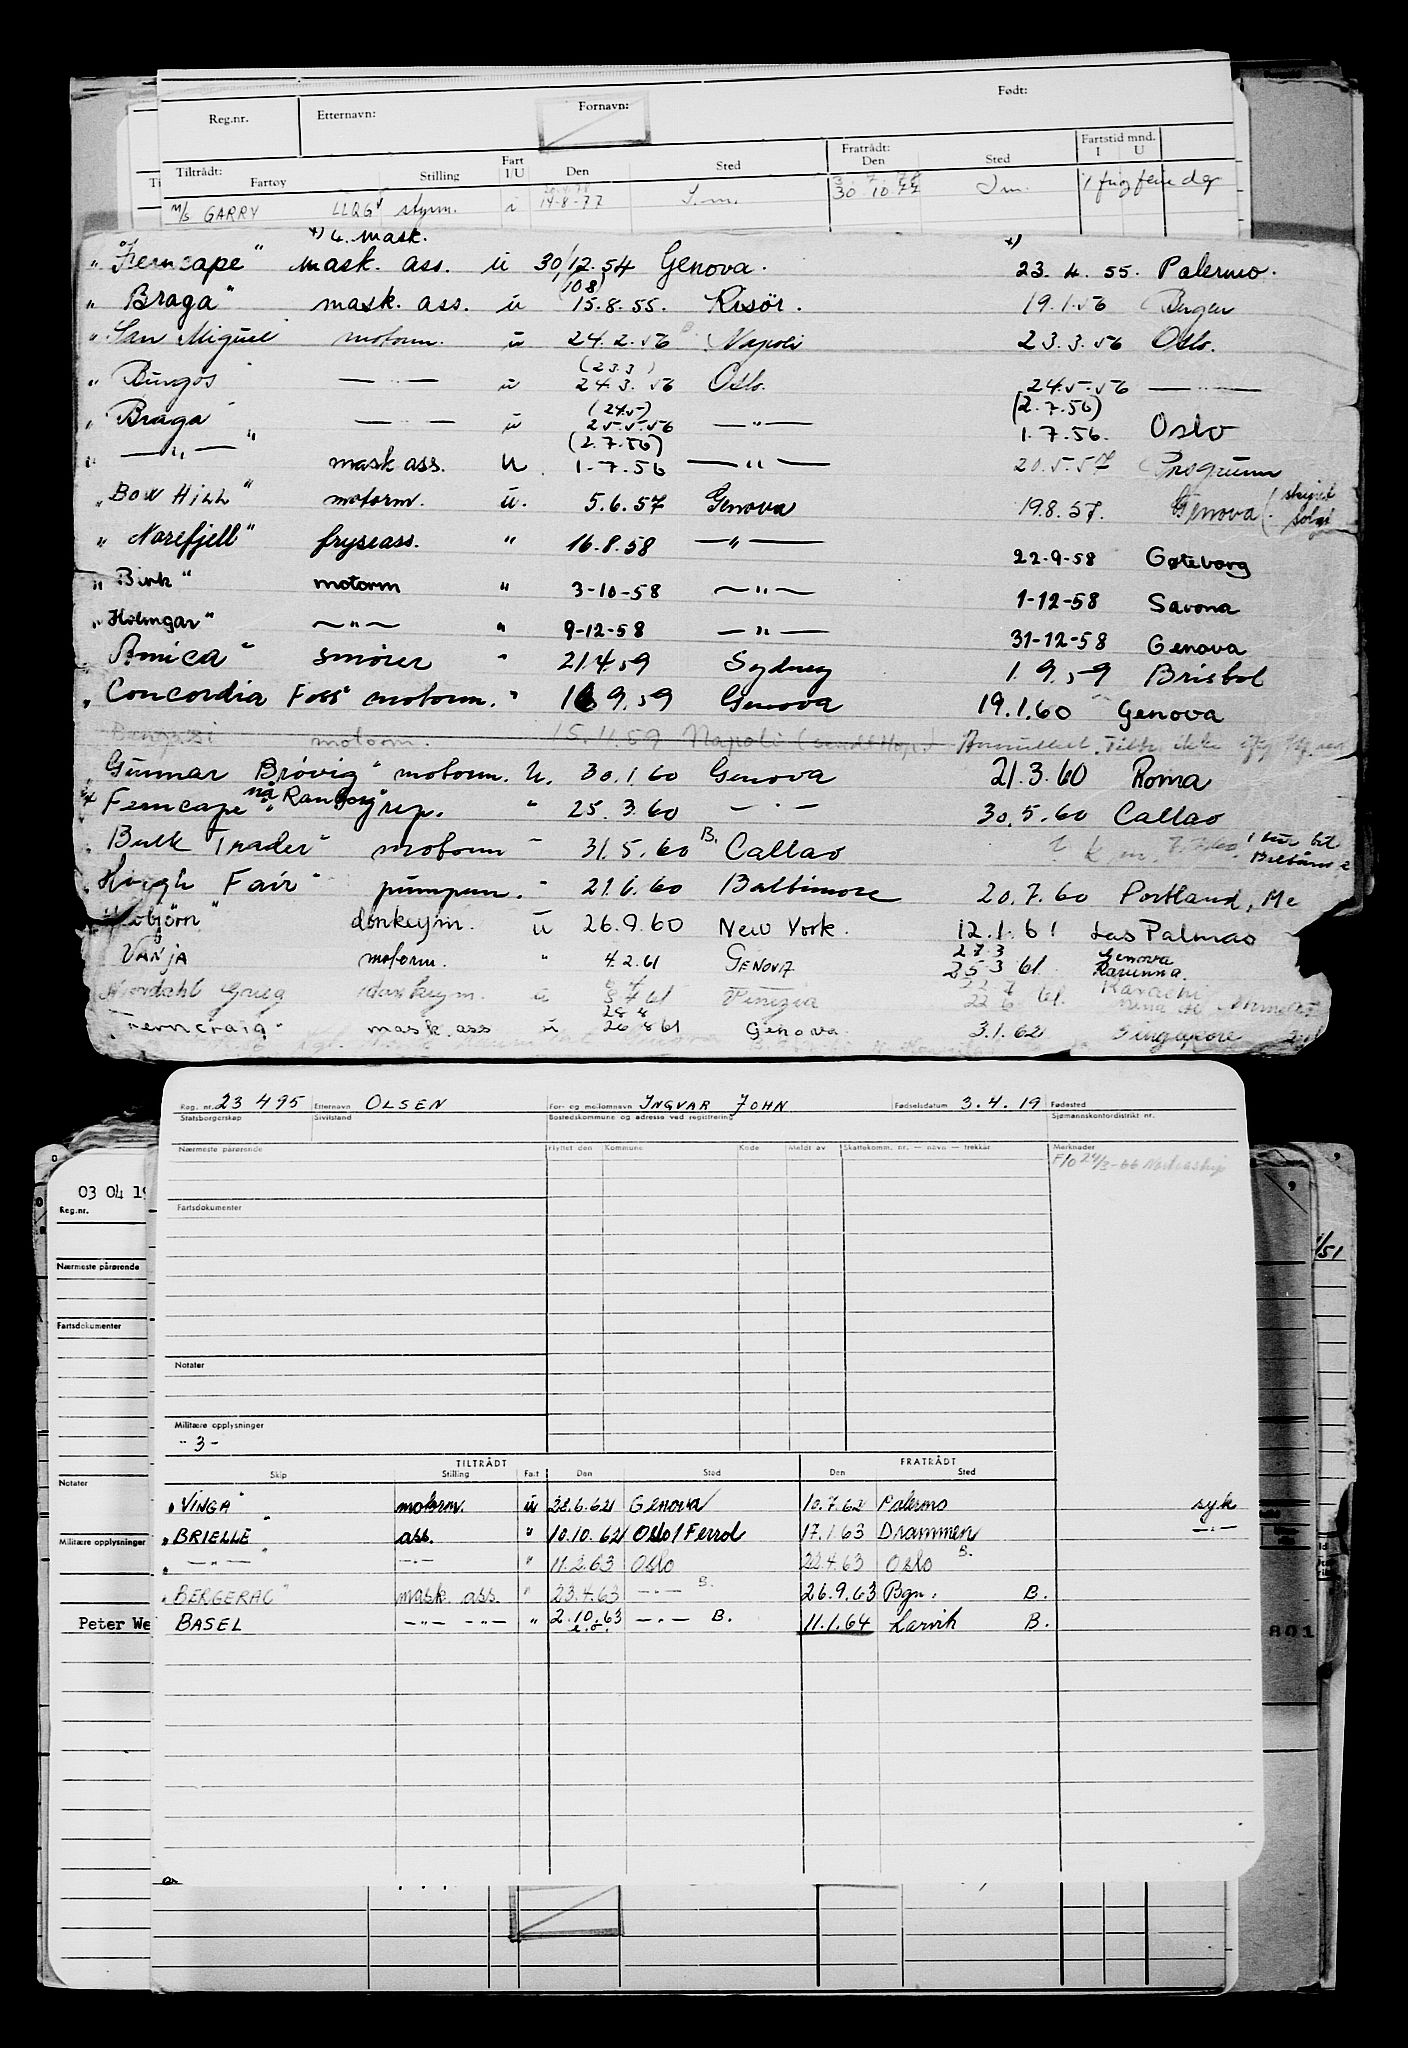 Reg.nr. Etternavn: Fornavn: Født:
Tiltrådt: Fartøy Stilling Fart I/U Den Sted Fratrådt: Den Sted Fartstid mnd. I U
M/S GARRY LLQG styrm. i 14-8-77 I.m. 30.10.77 I m. 1
x) 4. mask. x)
" Ferncape" mask. ass. u 30/12.54 Genova. 23.4.55. Palermo.
(10 8)
" Braga" mask. ass. u 15.8.55. Risör. 19.1.56 Bergen
" San Miguel motorm. u 24.2.56 B. Napoli 23.3.56 Oslo.
(23.3)
" Burgos — " — u 24.3.56 Oslo. 24.5.56 — " —
(24.5) (2.7.56)
" Braga — " — u 25.5.56 — " — 1.7.56. Oslo
(2.7.56)
" — " — " mask ass. u. 1-7.56 — " — 20.5.57 Porsgrunn
" Bow Hill" motorm. u. 5.6.57 Genova 19.8.57. Genova (skipet solgt
" Norefjell" fryseass. " 16.8.58 — " — 22-9-58 Gøteborg
" Birk" motorm " 3-10-58 — " — 1-12-58 Savona
" Holmgar" — " — " 9-12-58 — " — 31-12-58 Genova
" Amica" smører " 21.4.59 Sydney 1.9.59 Bristol
" Concordia Foss" motorm. " 16 9.59 Genova 19.1.60 Genova
Bengazi motorm. 15.11.59 Napoli Annullert.
" Gunnar Brövig" motorm. u. 30.1.60 Genova 21.3.60 Roma
" Ferncape" nå rep. " 25.3.60 — " — 30.5.60 Callao
" Bulk Trader" motorm " 31.5.60 B. Callao 1 tur til
Høegh Fair" pumpem. " 21.6.60 Baltimore 20.7.60 Portland, Me
donkeym. u 26.9.60 New York. 12.1.61 Las Palmas
27.3 Genova
Vanja motorm. " 4.2.61 Genova 25.3.61 Ravenna.
Nordahl Grieg donkeym. u 61 Karachi
28 8
" Ferncraig" mask. ass u 26 8 61 Genova. 3.1.62 Singapore
Reg. nr. 23 495 Etternavn OLSEN For- og mellomnavn INGVAR JOHN Fødselsdatum 3.4.19 Fødested
Statsborgerskap Sivilstand Bostedskommune og adresse ved registrering Sjømannskontordistrikt nr.
Nærmeste pårørende Flyttet den Kommune Kode Meldt av Skattekomm. nr. — navn — trekkår Merknader
F/o 24/3-66 Nortraship
Fartsdokumenter
Notater
Militære opplysninger
" 3 -
TILTRÅDT FRATRÅDT
Skip Stilling Fart Den Sted Den Sted
" VINGA" motorm. u 28.6.62 Genova 10.7.62 Palermo syk
" BRIELLE" ass. " 10.10.62 Oslo/Ferrol 17.1.63 Drammen — " —
" — " — " — " — " 11.2.63 Oslo 22.4.63 Oslo B.
" BERGERAC" mask. ass. " 23.4.63 — " — B. 26.9.63 Bgn. B.
BASEL — " — — " — " 2.10.63 — " — B. 11.1.64 Larvik B.
e.o.
03 04 19
Reg.nr.
Nærmeste pårørende
Fartsdokumenter
Notater
Militære opplysninger
Peter We
/51
801